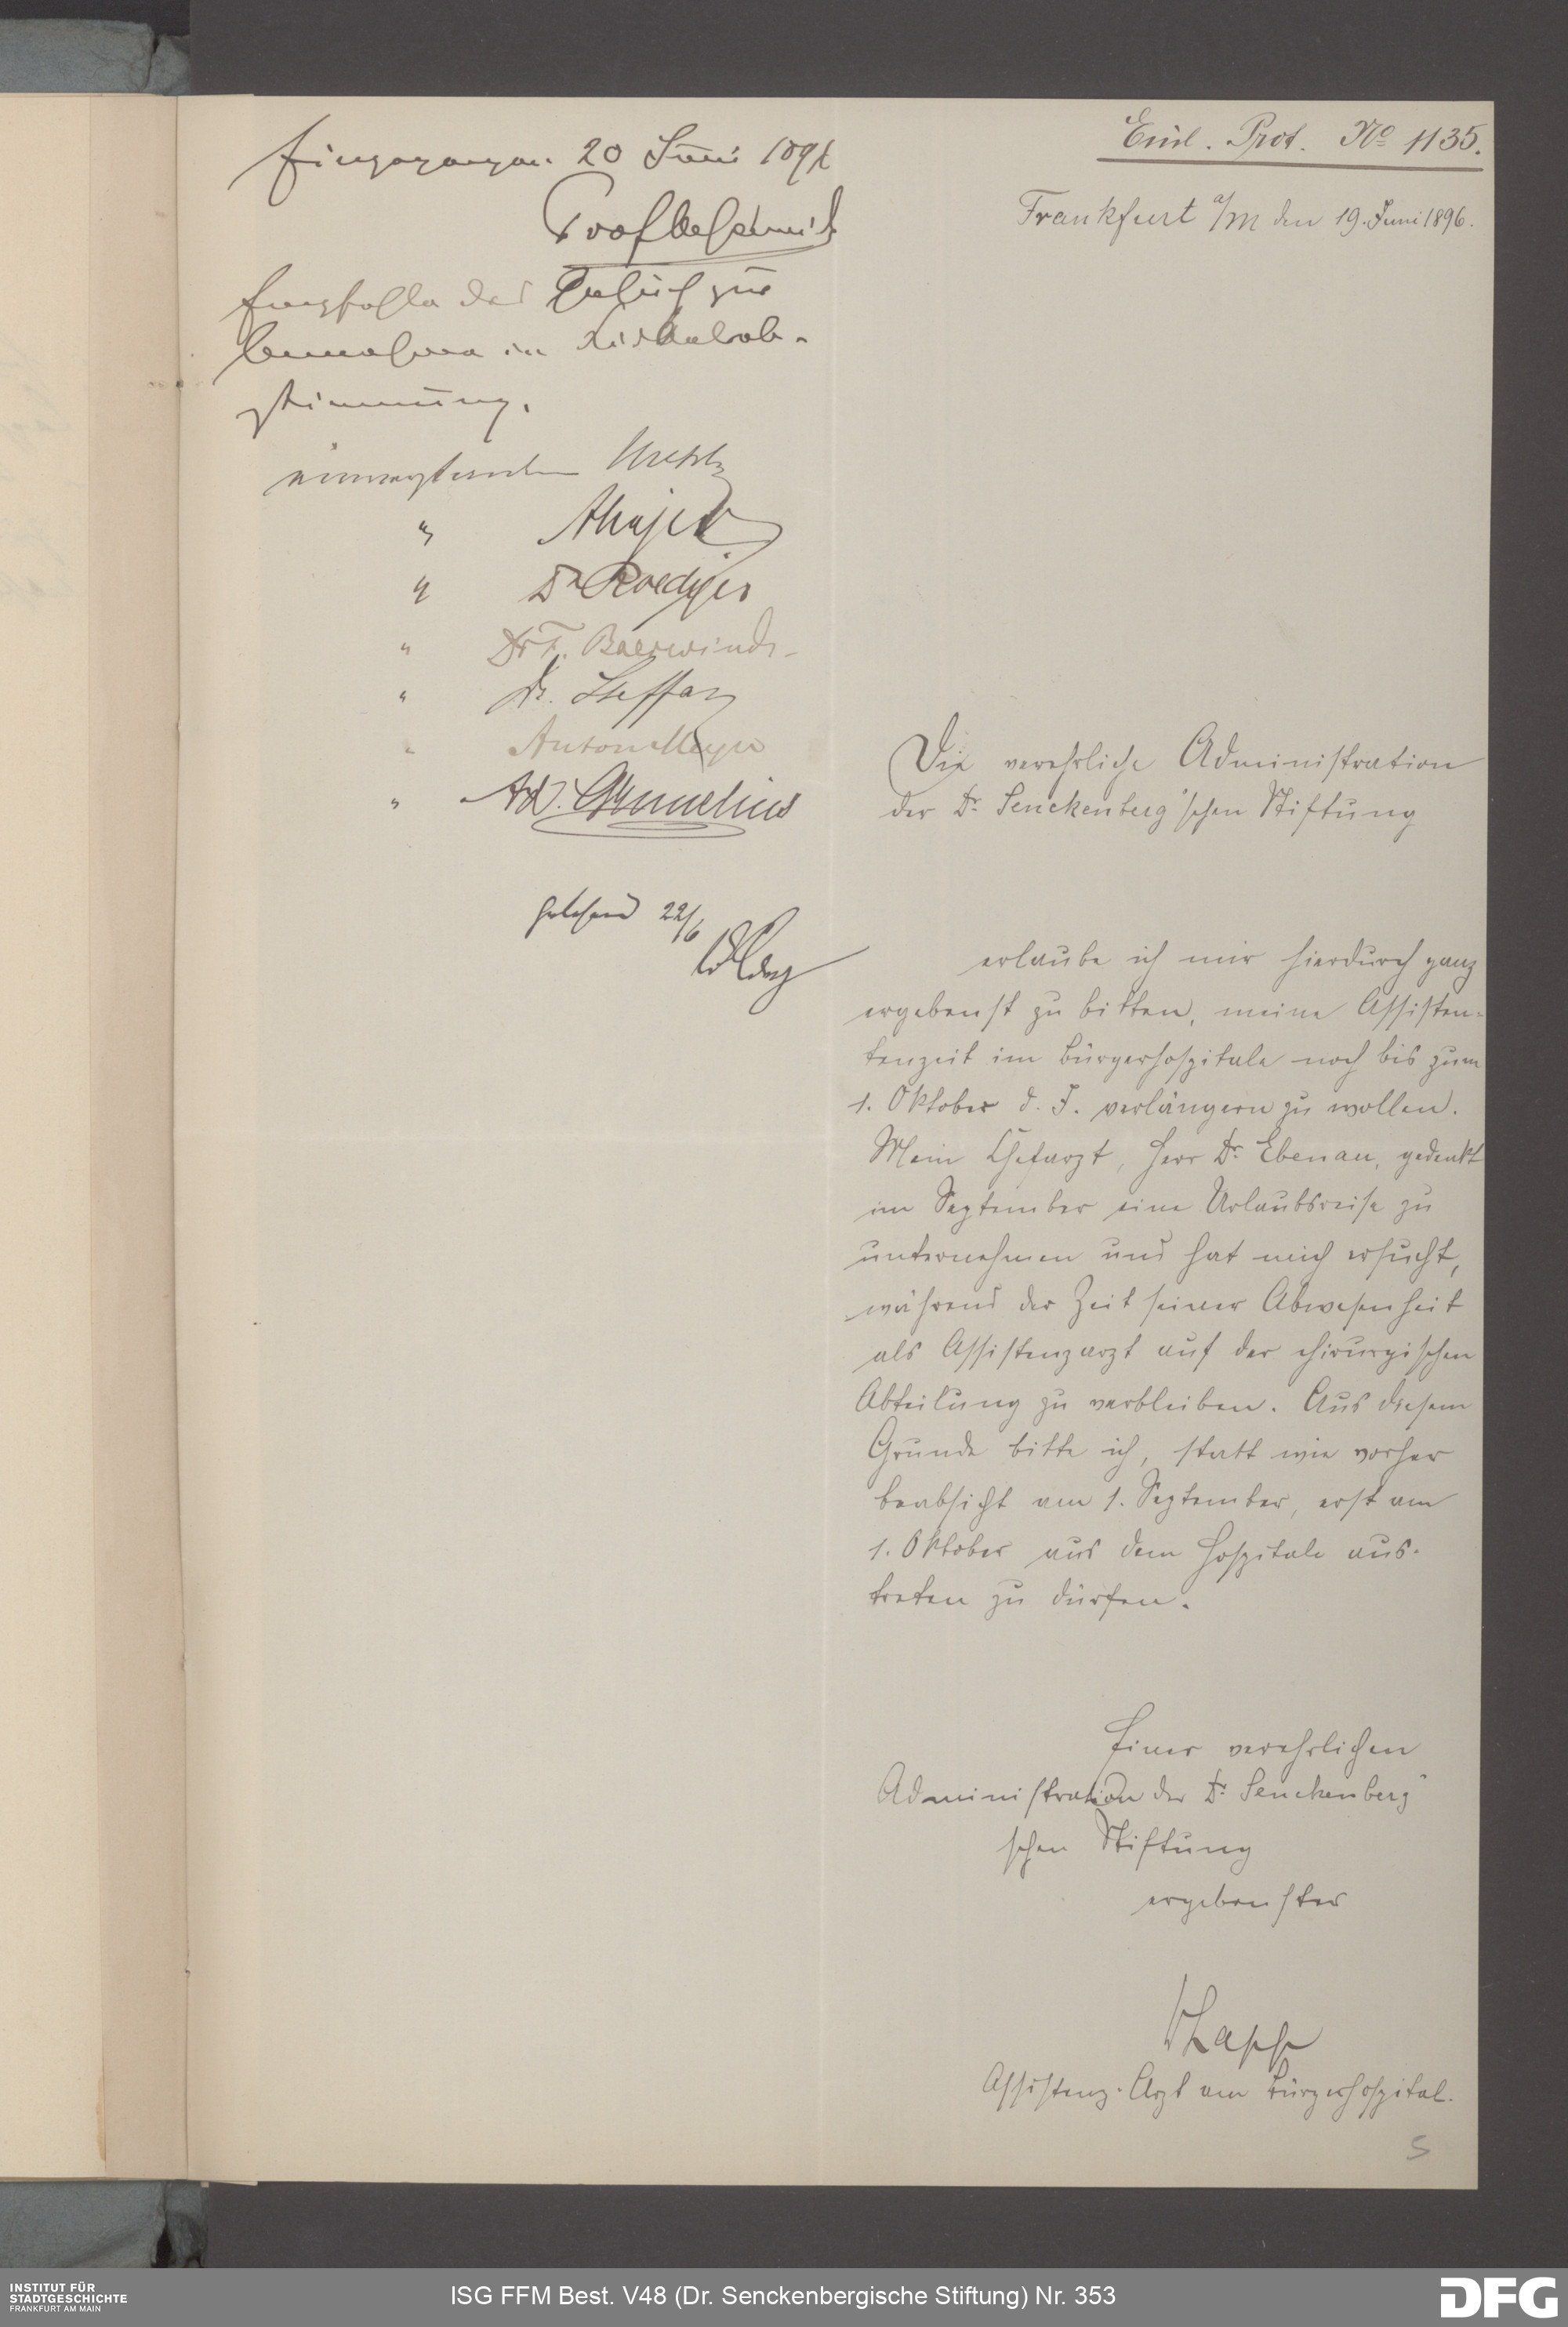 Einl. Prot. No 1135.
Frankfurt a/M den 19. Juni 1896.
Eingegangen 20 Juni 1896
Empfehle das Gesuch zur
in Zirkularab-
stimmung.
einverstanden
" 
" Dr Roediger
" Dr F. Baerwindt
" Dr. Steffan
" Anton Meyer
" Ad. Grunelius
gelesen 22/6
Die verehrliche Administration
der Dr. Senckenberg'schen Stiftung
erlaube ich mir hierdurch ganz
ergebenst zu bitten, meine Assisten-
tenzeit im Bürgerhospitale noch bis zum
1. Oktober d. J. verlängern zu wollen.
Mein Chefarzt, Herr Dr. Ebenau, gedenkt
im September eine Urlaubsreise zu
unternehmen und hat mich ersucht,
während der Zeit seiner Abwesenheit
als Assistenzarzt auf der chirurgischen
Abteilung zu verbleiben. Aus diesem
Grunde bitte ich, statt wie vorher
beabsicht am 1. September, erst am
1. Oktober aus dem Hospitale aus-
treten zu dürfen.
Einer verehrlichen
Administration der Dr. Senckenberg'
schen Stiftung
ergebenster
Assistenz-Arzt am Bürgerhospital.
5
INSTITUT FÜR
STADTGESCHICHTE
FRANKFURT AM MAIN
ISG FFM Best. V48 (Dr. Senckenbergische Stiftung) Nr. 353
DFG